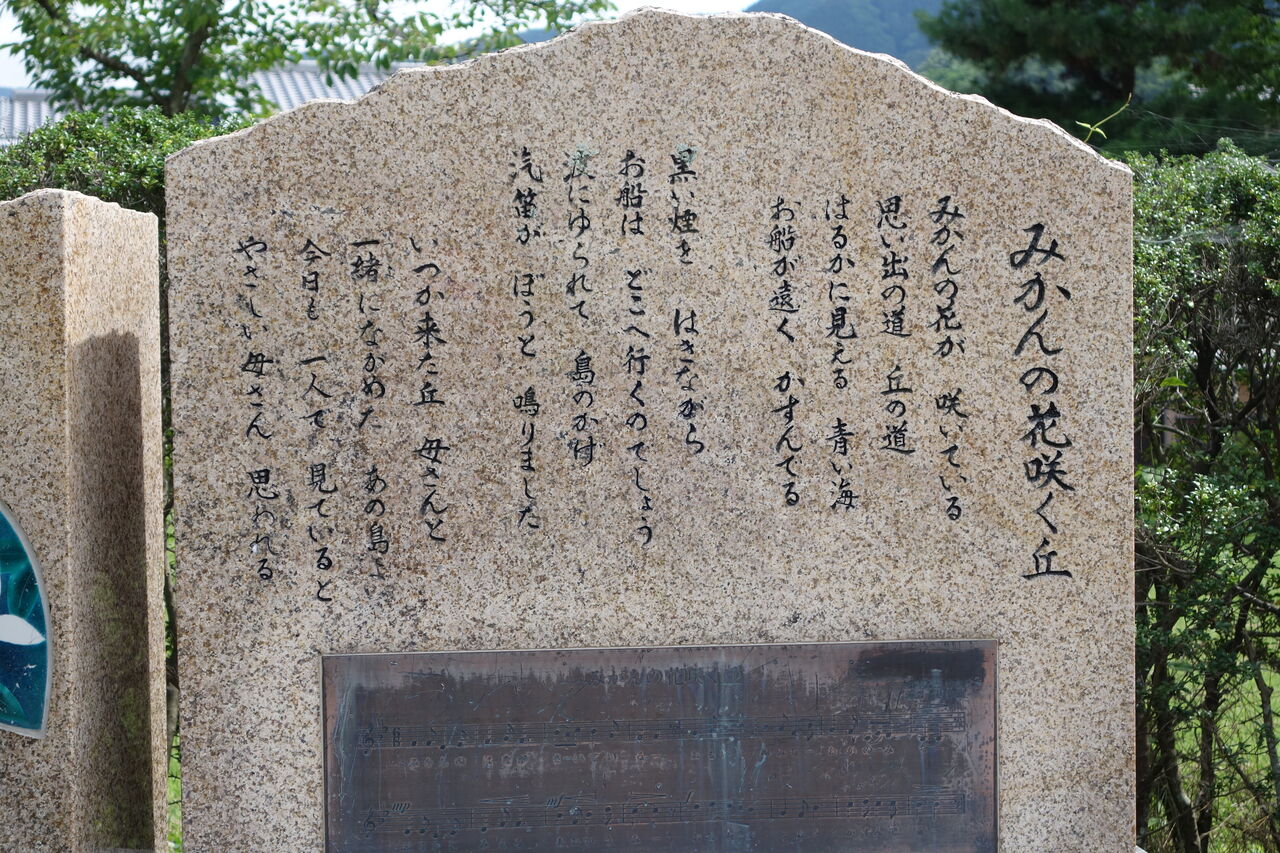 みかんの花咲く丘
みかんの花が　咲いている
思い出の道　丘の道
はるかに見える　青い海
お船が遠く　かすんでる
黒い煙を　はきながら
お船は　どこへ行くのでしょう
波にゆられて　島のかげ
汽笛が　ぼうと　鳴りました
いつか来た丘　母さんと
一緒にながめた　あの島よ
今日も　一人で　見ていると
やさしい母さん　思われる
mp
mf